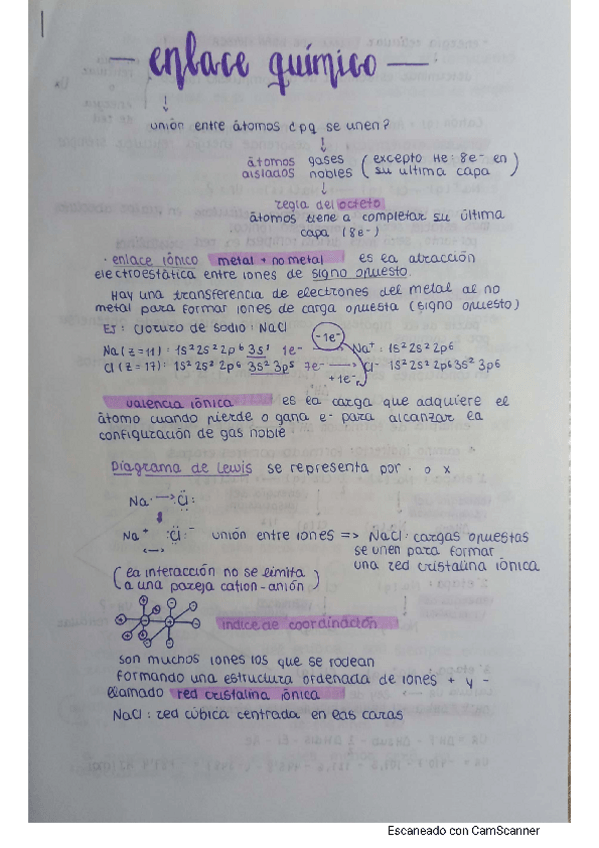 — enlace químico —
↓
unión entre átomos ¿pq se unen?
↓
átomos gases (excepto He: 8e- en
aislados nobles su ultima capa)
↓
regla del octeto
átomos tiene a completar su última
capa (8e-)
· enlace iónico metal + no metal es la atracción
electroestática entre iones de signo opuesto.
Hay una transferencia de electrones del metal al no
metal para formar iones de carga opuesta (signo opuesto)
Ej: cloruro de sodio: NaCl
Na (z=11): 1s² 2s² 2p⁶ 3s¹ 1e- -1e- → Na⁺: 1s² 2s² 2p⁶
Cl (z=17): 1s² 2s² 2p⁶ 3s² 3p⁵ 7e- → Cl- 1s² 2s² 2p⁶ 3s² 3p⁶
+1e-
valencia iónica es la carga que adquiere el
átomo cuando pierde o gana e- para alcanzar la
configuración de gas noble
Diagrama de Lewis se representa por · o x
Na· → Cl:
Na⁺ Cl:⁻ unión entre iones => NaCl: cargas opuestas
se unen para formar
una red cristalina iónica
(la interacción no se limita
a una pareja cation-anión)
indice de coordinación
son muchos iones los que se rodean
formando una estructura ordenada de iones + y -
llamado red cristalina iónica
NaCl: red cúbica centrada en las caras
Escaneado con CamScanner